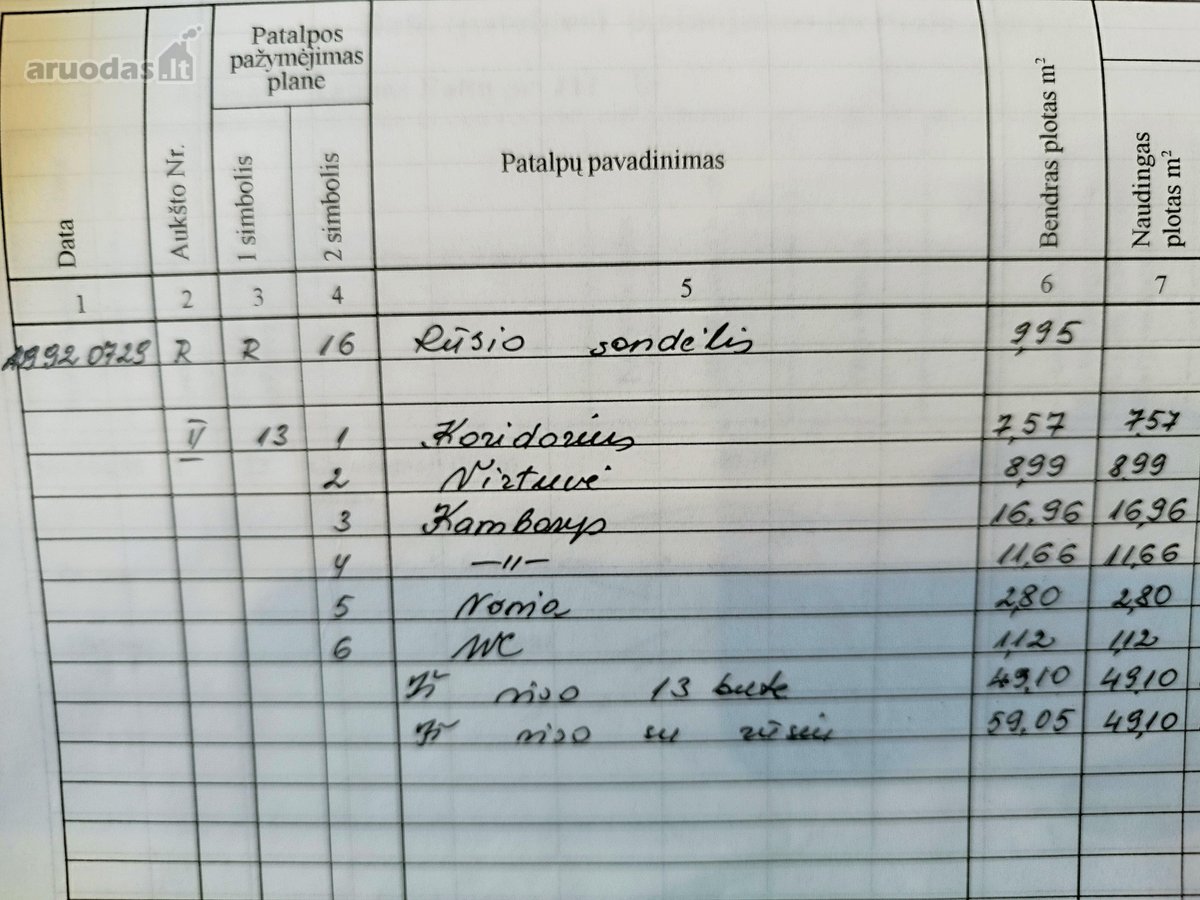 aruodas.lt
Data
Aukšto Nr.
Patalpos
pažymėjimas
plane
1 simbolis
2 simbolis
Patalpų pavadinimas
Bendras plotas m²
Naudingas
plotas m²
1 2 3 4 5 6 7
19920729 R R 16 Rūsio sandėlis 9,95
V 13 1 Koridorius 7,57 7,57
2 Virtuvė 8,99 8,99
3 Kambarys 16,96 16,96
4 —"— 11,66 11,66
5 Vonia 2,80 2,80
6 WC 1,12 1,12
Iš viso 13 bute 49,10 49,10
Iš viso su rūsiu 59,05 49,10